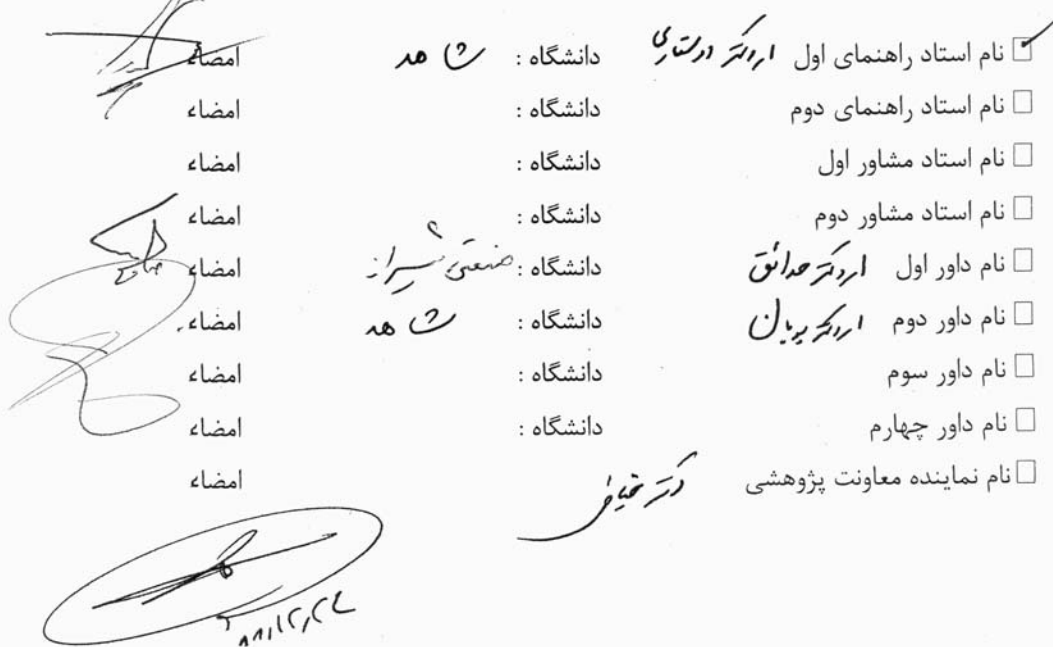 ☑ نام استاد راهنمای اول دانشگاه : شاهد امضاء
□ نام استاد راهنمای دوم دانشگاه : امضاء
□ نام استاد مشاور اول دانشگاه : امضاء
□ نام استاد مشاور دوم دانشگاه : امضاء
□ نام داور اول دکتر حدائق دانشگاه : صنعتی شیراز امضاء
□ نام داور دوم دکتر پویان دانشگاه : شاهد امضاء
□ نام داور سوم دانشگاه : امضاء
□ نام داور چهارم دانشگاه : امضاء
□ نام نماینده معاونت پژوهشی دکتر امضاء